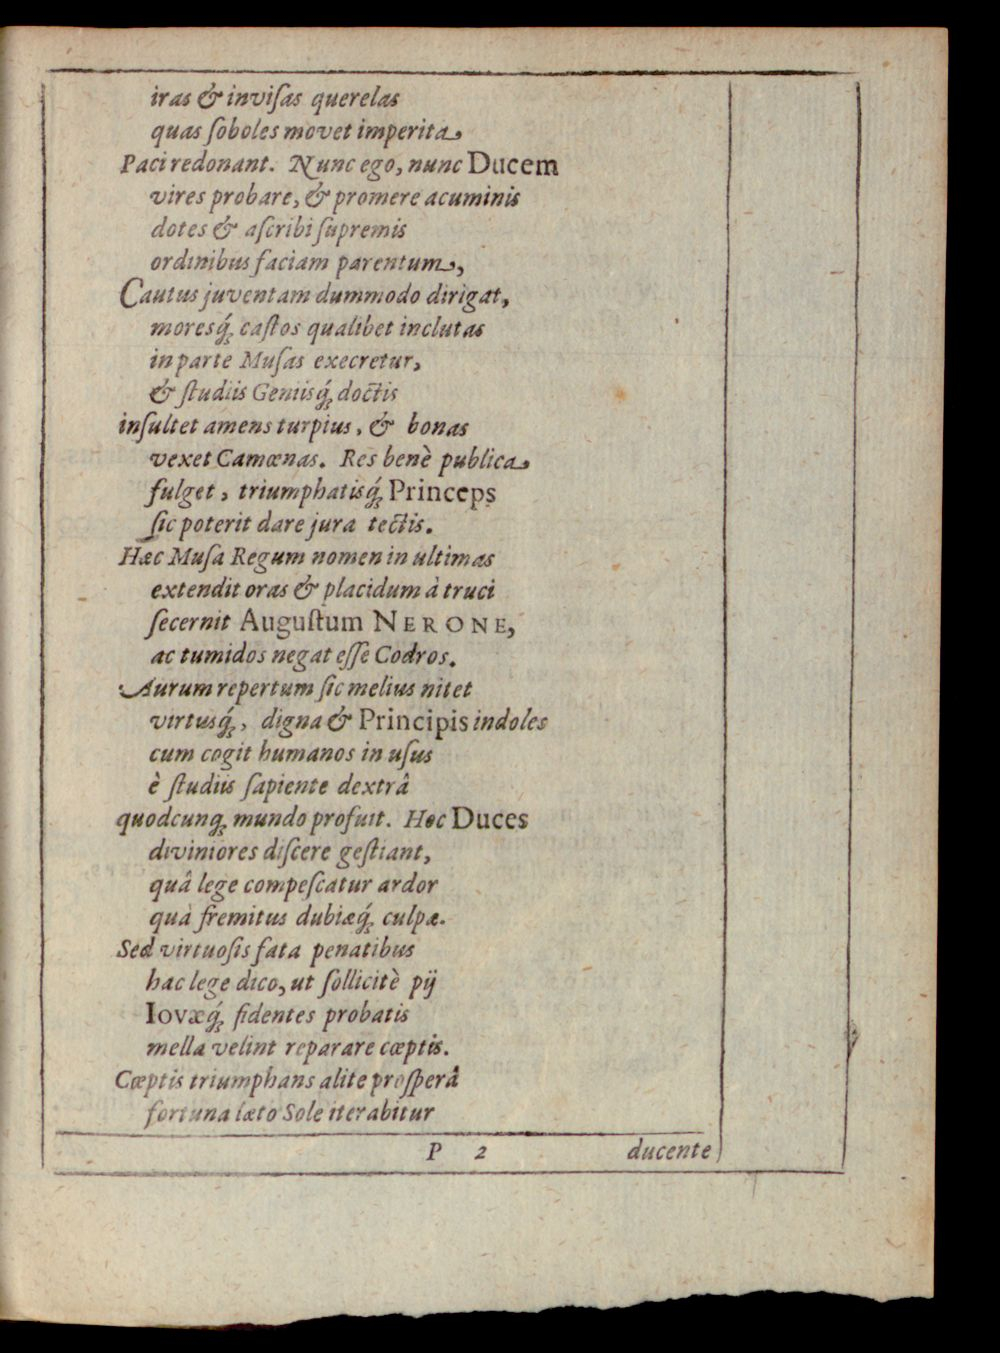 iras & inviſas querelas
quas ſoboles movet imperita
Paci redonant. Nunc ego, nunc Ducem
vires probare, & promere acuminis
dotes & aſcribi ſupremis
ordinibus faciam parentum,
Cautus juventam dummodo dirigat,
moresq́ꝫ caſtos qualibet inclutas
in parte Muſas execretur,
& ſtudiis Geniisq́ꝫ doctis
inſultet amens turpius, & bonas
vexet Camœnas. Res benè publica
fulget, triumphatisq́ꝫ Princeps
ſic poterit dare jura tectis.
Hæc Muſa Regum nomen in ultimas
extendit oras & placidum à truci
ſecernit Auguſtum NERONE,
ac tumidos negat eſſe Codros.
Aurum repertum ſic melius nitet
virtusq́ꝫ, digna & Principis indoles
cum cogit humanos in uſus
è ſtudiis ſapiente dextrâ
quodcunqꝫ mundo profuit. Hoc Duces
diviniores diſcere geſtiant,
quâ lege compeſcatur ardor
quà fremitus dubiæq́ꝫ culpæ.
Sed virtuoſis fata penatibus
hac lege dico, ut ſollicitè pij
Iovæq́ꝫ fidentes probatis
mella velint reparare cœptis.
Cœptis triumphans alite proſperâ
fortuna læto Sole iterabitur
P 2 ducente